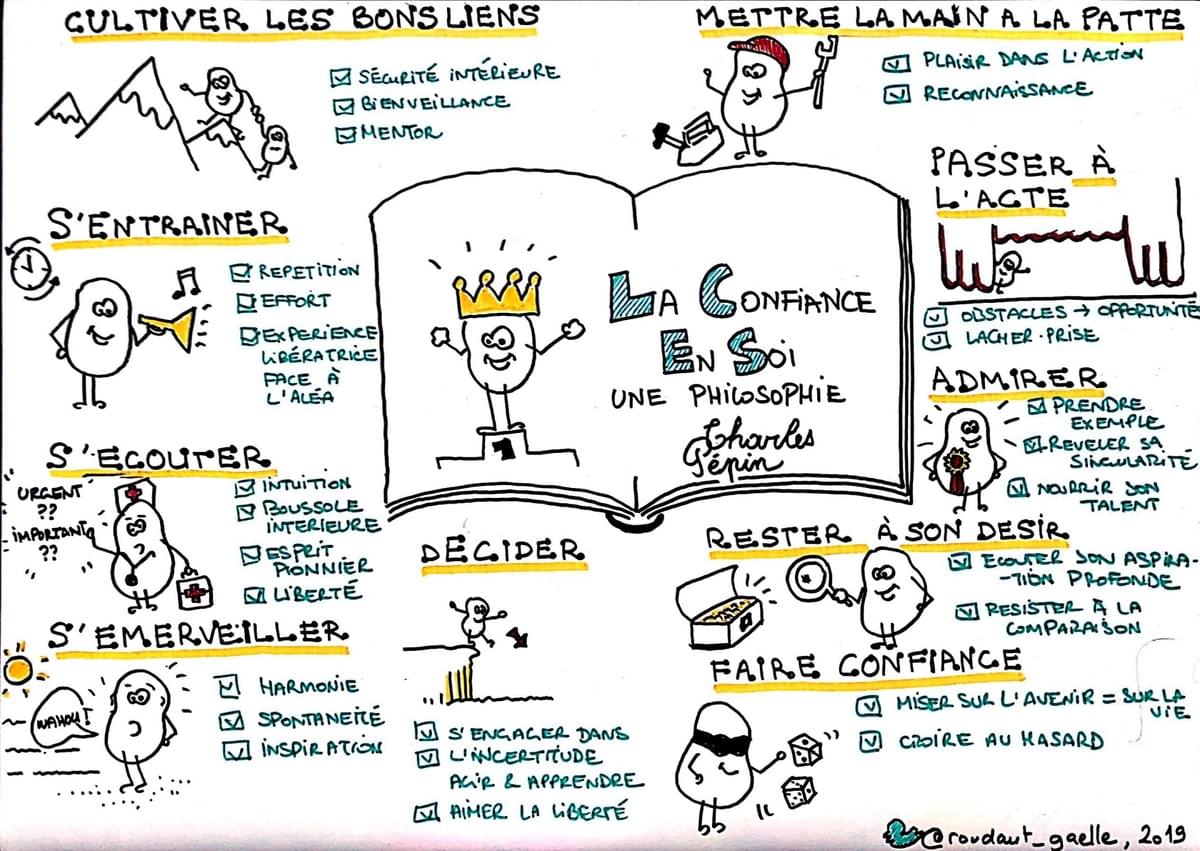 CULTIVER LES BONS LIENS
SÉCURITÉ INTÉRIEURE
BIENVEILLANCE
MENTOR
METTRE LA MAIN A LA PATTE
PLAISIR DANS L'ACTION
RECONNAISSANCE
S'ENTRAINER
REPETITION
EFFORT
EXPERIENCE
LIBÉRATRICE
FACE À
L'ALÉA
LA CONFIANCE
EN SOI
UNE PHILOSOPHIE
Charles
Pépin
1
PASSER À
L'ACTE
OBSTACLES → OPPORTUNITÉ
LACHER-PRISE
ADMIRER
PRENDRE
EXEMPLE
REVELER SA
SINGULARITÉ
NOURRIR SON
TALENT
S'ECOUTER
URGENT
??
IMPORTANT
??
INTUITION
BOUSSOLE
INTERIEURE
ESPRIT
PIONNIER
LIBERTÉ
S'EMERVEILLER
WAHOU!
HARMONIE
SPONTANEITÉ
INSPIRATION
DÉCIDER
S'ENGAGER DANS
L'INCERTITUDE
AGIR & APPRENDRE
AIMER LA LIBERTÉ
RESTER À SON DESIR
ECOUTER SON ASPIRA-
-TION PROFONDE
RESISTER À LA
COMPARAISON
FAIRE CONFIANCE
MISER SUR L'AVENIR = SUR LA
VIE
CROIRE AU HASARD
@roudaut_gaelle, 2019